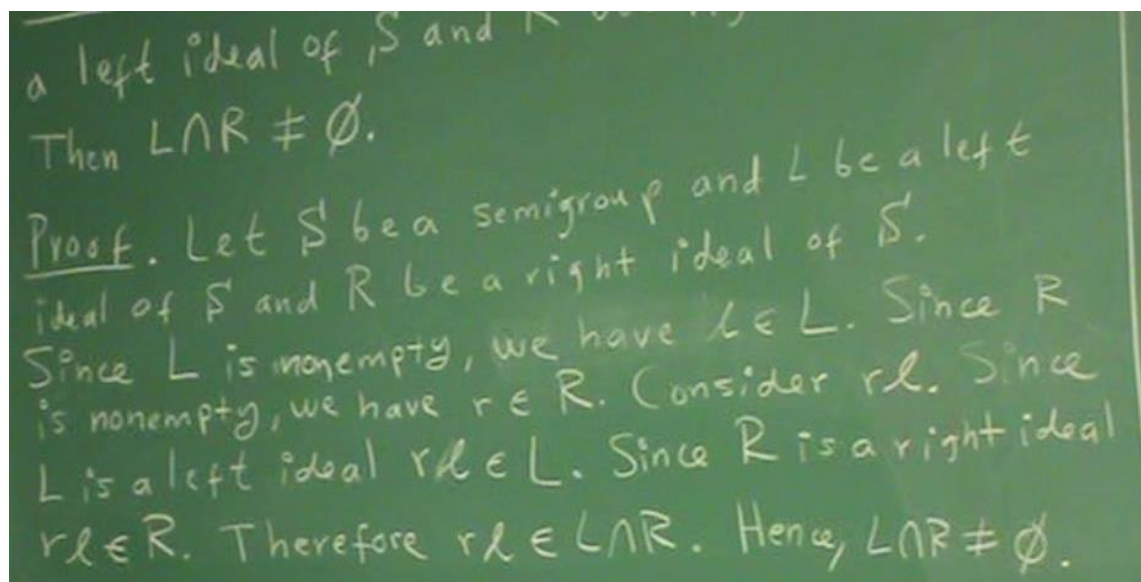 a left ideal of S and R
Then L∩R ≠ ∅.
Proof. Let S be a semigroup and L be a left
ideal of S and R be a right ideal of S.
Since L is nonempty, we have l ∈ L. Since R
is nonempty, we have r ∈ R. Consider rl. Since
L is a left ideal rl ∈ L. Since R is a right ideal
rl ∈ R. Therefore rl ∈ L∩R. Hence, L∩R ≠ ∅.